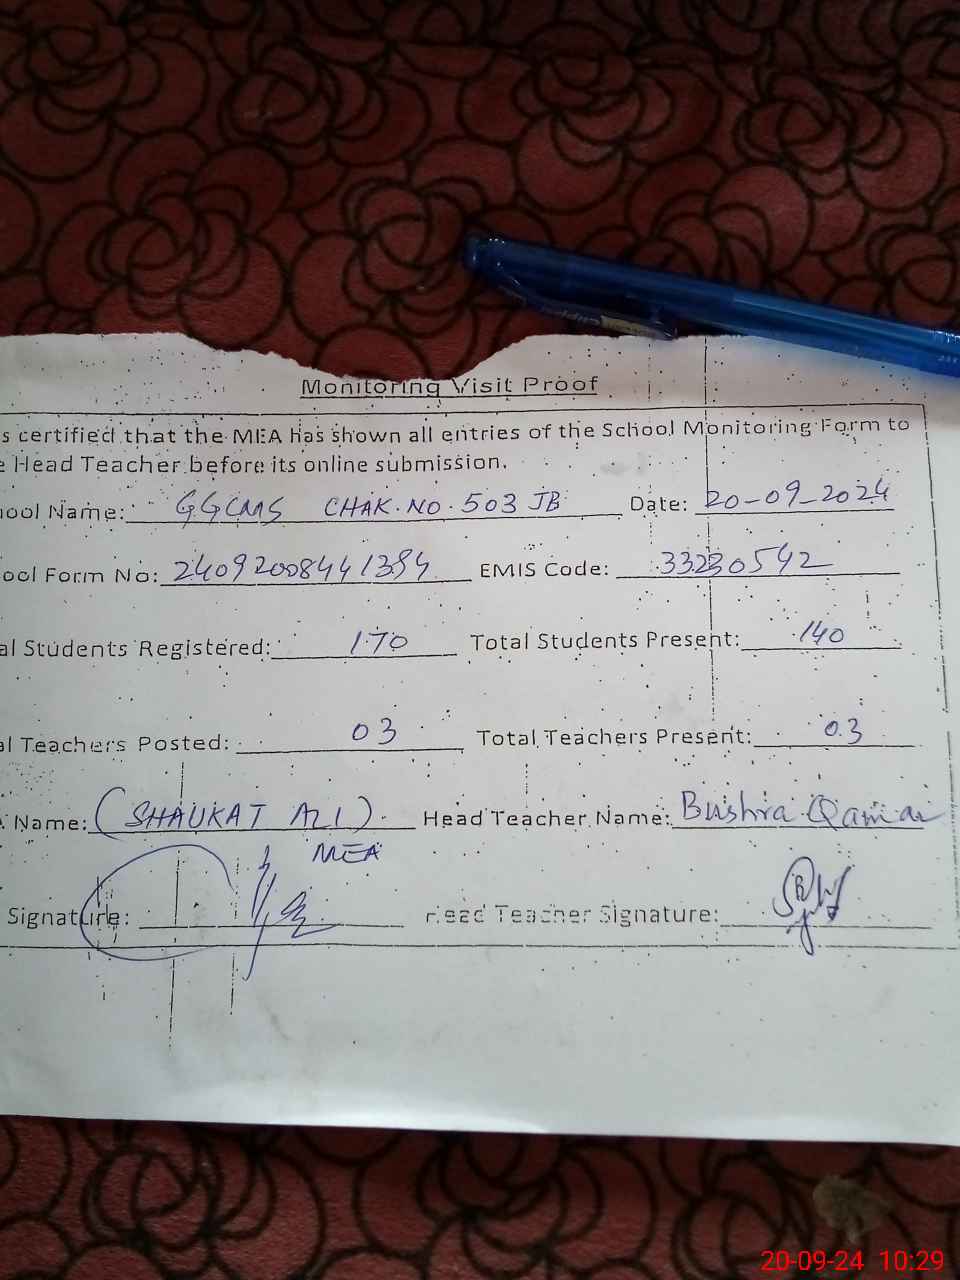 Monitoring Visit Proof
s certified that the MEA has shown all entries of the School Monitoring Form to
e Head Teacher before its online submission.
ool Name: GGCMS CHAK.NO.503 JB Date: 20-09-2024
ool Form No: 24092008441394 EMIS Code: 33230542
al Students Registered: 170 Total Students Present: 140
al Teachers Posted: 03 Total Teachers Present: 03
Name: (SHAUKAT ALI). Head Teacher Name: Bushra Qamar
MEA
Signature: Head Teacher Signature:
20-09-24 10:29